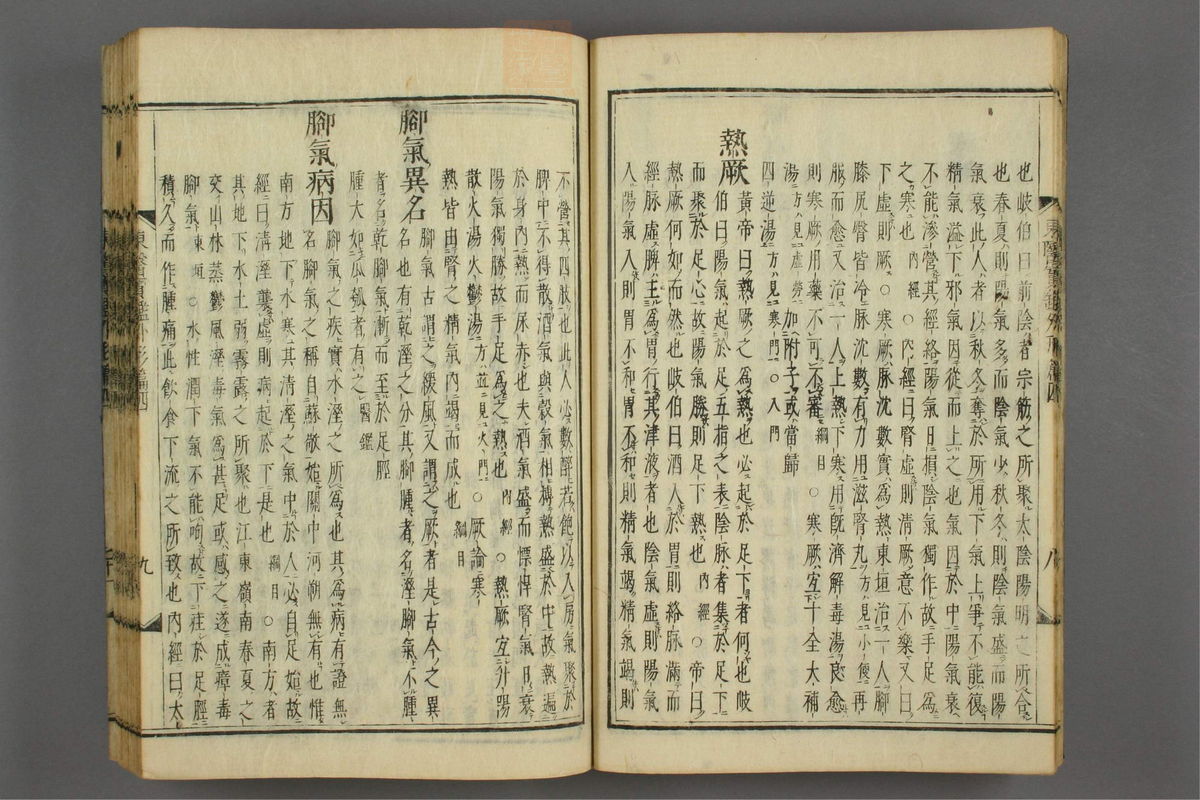 也歧伯曰前陰者宗筋之所聚太陰陽明之所合
也春夏則陽氣多而陰氣少秋冬則陰氣盛而陽
氣衰此人者以秋冬奪於所用下氣上爭不能復
精氣溢下邪氣因從而上之也氣因於中陽氣衰
不能滲營其經絡陽氣日損陰氣獨作故手足爲
之寒也內經○內經曰腎虛則清厥意不樂又曰
下虛則厥○寒厥脉沈數實爲熱東垣治一人脚
膝尻臀皆冷脉沈數有力用滋腎丸方見小便再
服而愈又治一人上熱下寒用既濟解毒湯良愈
則寒厥用藥不可不審綱目○寒厥宜十全大補
湯方見虛勞加附子或當歸
四逆湯方見寒門○入門
熱厥黃帝曰熱厥之爲熱也必起於足下者何也歧
伯曰陽氣起於五指之表陰脉者集於足下
而聚於足心故陽氣勝則足下熱也內經○帝曰
熱厥何如而然也歧伯曰酒人於胃則絡脉滿而
經脉虛脾主爲胃行其津液者也陰氣虛則陽氣
入陽氣入則胃不和胃不和則精氣竭精氣竭則
不營其四肢也此人必數醉若飽以入房氣聚於
脾中不得散酒氣與穀氣相搏熱盛於中故熱遍
於身內熱而尿赤也夫酒氣盛而慓悍腎氣日衰
陽氣獨勝故手足爲之熱也內經○熱厥宜升陽
散火湯火鬱湯方並見火門○厥論寒
熱皆由腎之精氣內竭而成也綱目
脚氣異名脚氣古謂之緩風又謂之厥者是古今之異
名也有乾溼之分其脚腫者名溼脚氣不腫
者名乾脚氣漸而至於足脛
腫大如瓜瓠者有之醫鑑
脚氣病因脚氣之疾實水溼之所爲也其爲病有證無
名脚氣之稱自蘇敬始關中河朔無有也惟
南方地下水寒其清溼之氣中於人必自足始故
經曰清溼襲虛則病起於下是也綱目○南方者
其地下水土弱霧露之所聚也江東嶺南春夏之
交山林蒸鬱風溼毒氣爲甚足或感之遂成瘴毒
脚氣東垣○水性潤下氣不能呴故下疰於足脛
積久而作腫痛此飲食下流之所致也內經曰太
東醫寶鑑外形篇四
八
東醫寶鑑外形篇四
九